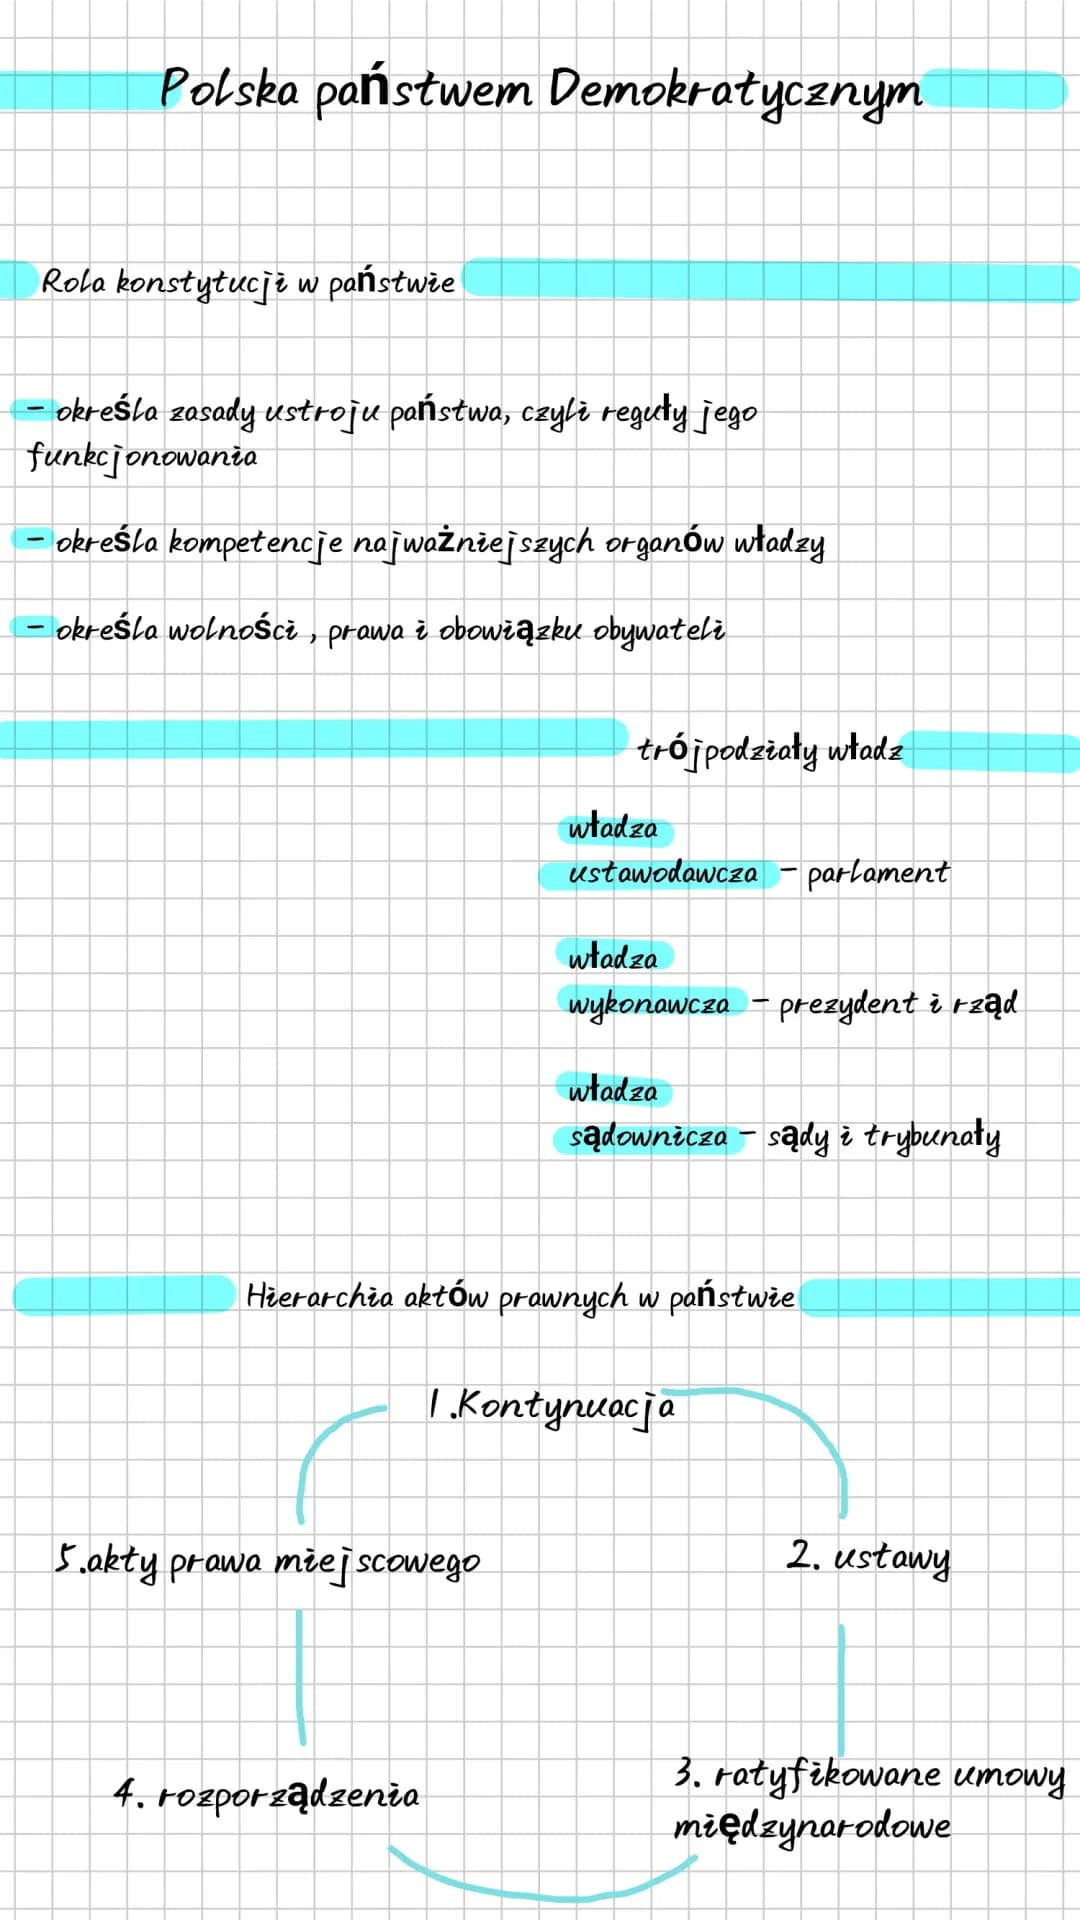 Polska państwem Demokratycznym
Rola konstytucji w państwie
- określa zasady ustroju państwa, czyli reguły jego
funkcjonowania
- określa kompetencje najważniejszych organów władzy
- określa wolności , prawa i obowiązku obywateli
trójpodziały władz
władza
ustawodawcza - parlament
władza
wykonawcza - prezydent i rząd
władza
sądownicza - sądy i trybunały
Hierarchia aktów prawnych w państwie
1.Kontynuacja
5.akty prawa miejscowego
2. ustawy
4. rozporządzenia
3. ratyfikowane umowy
międzynarodowe